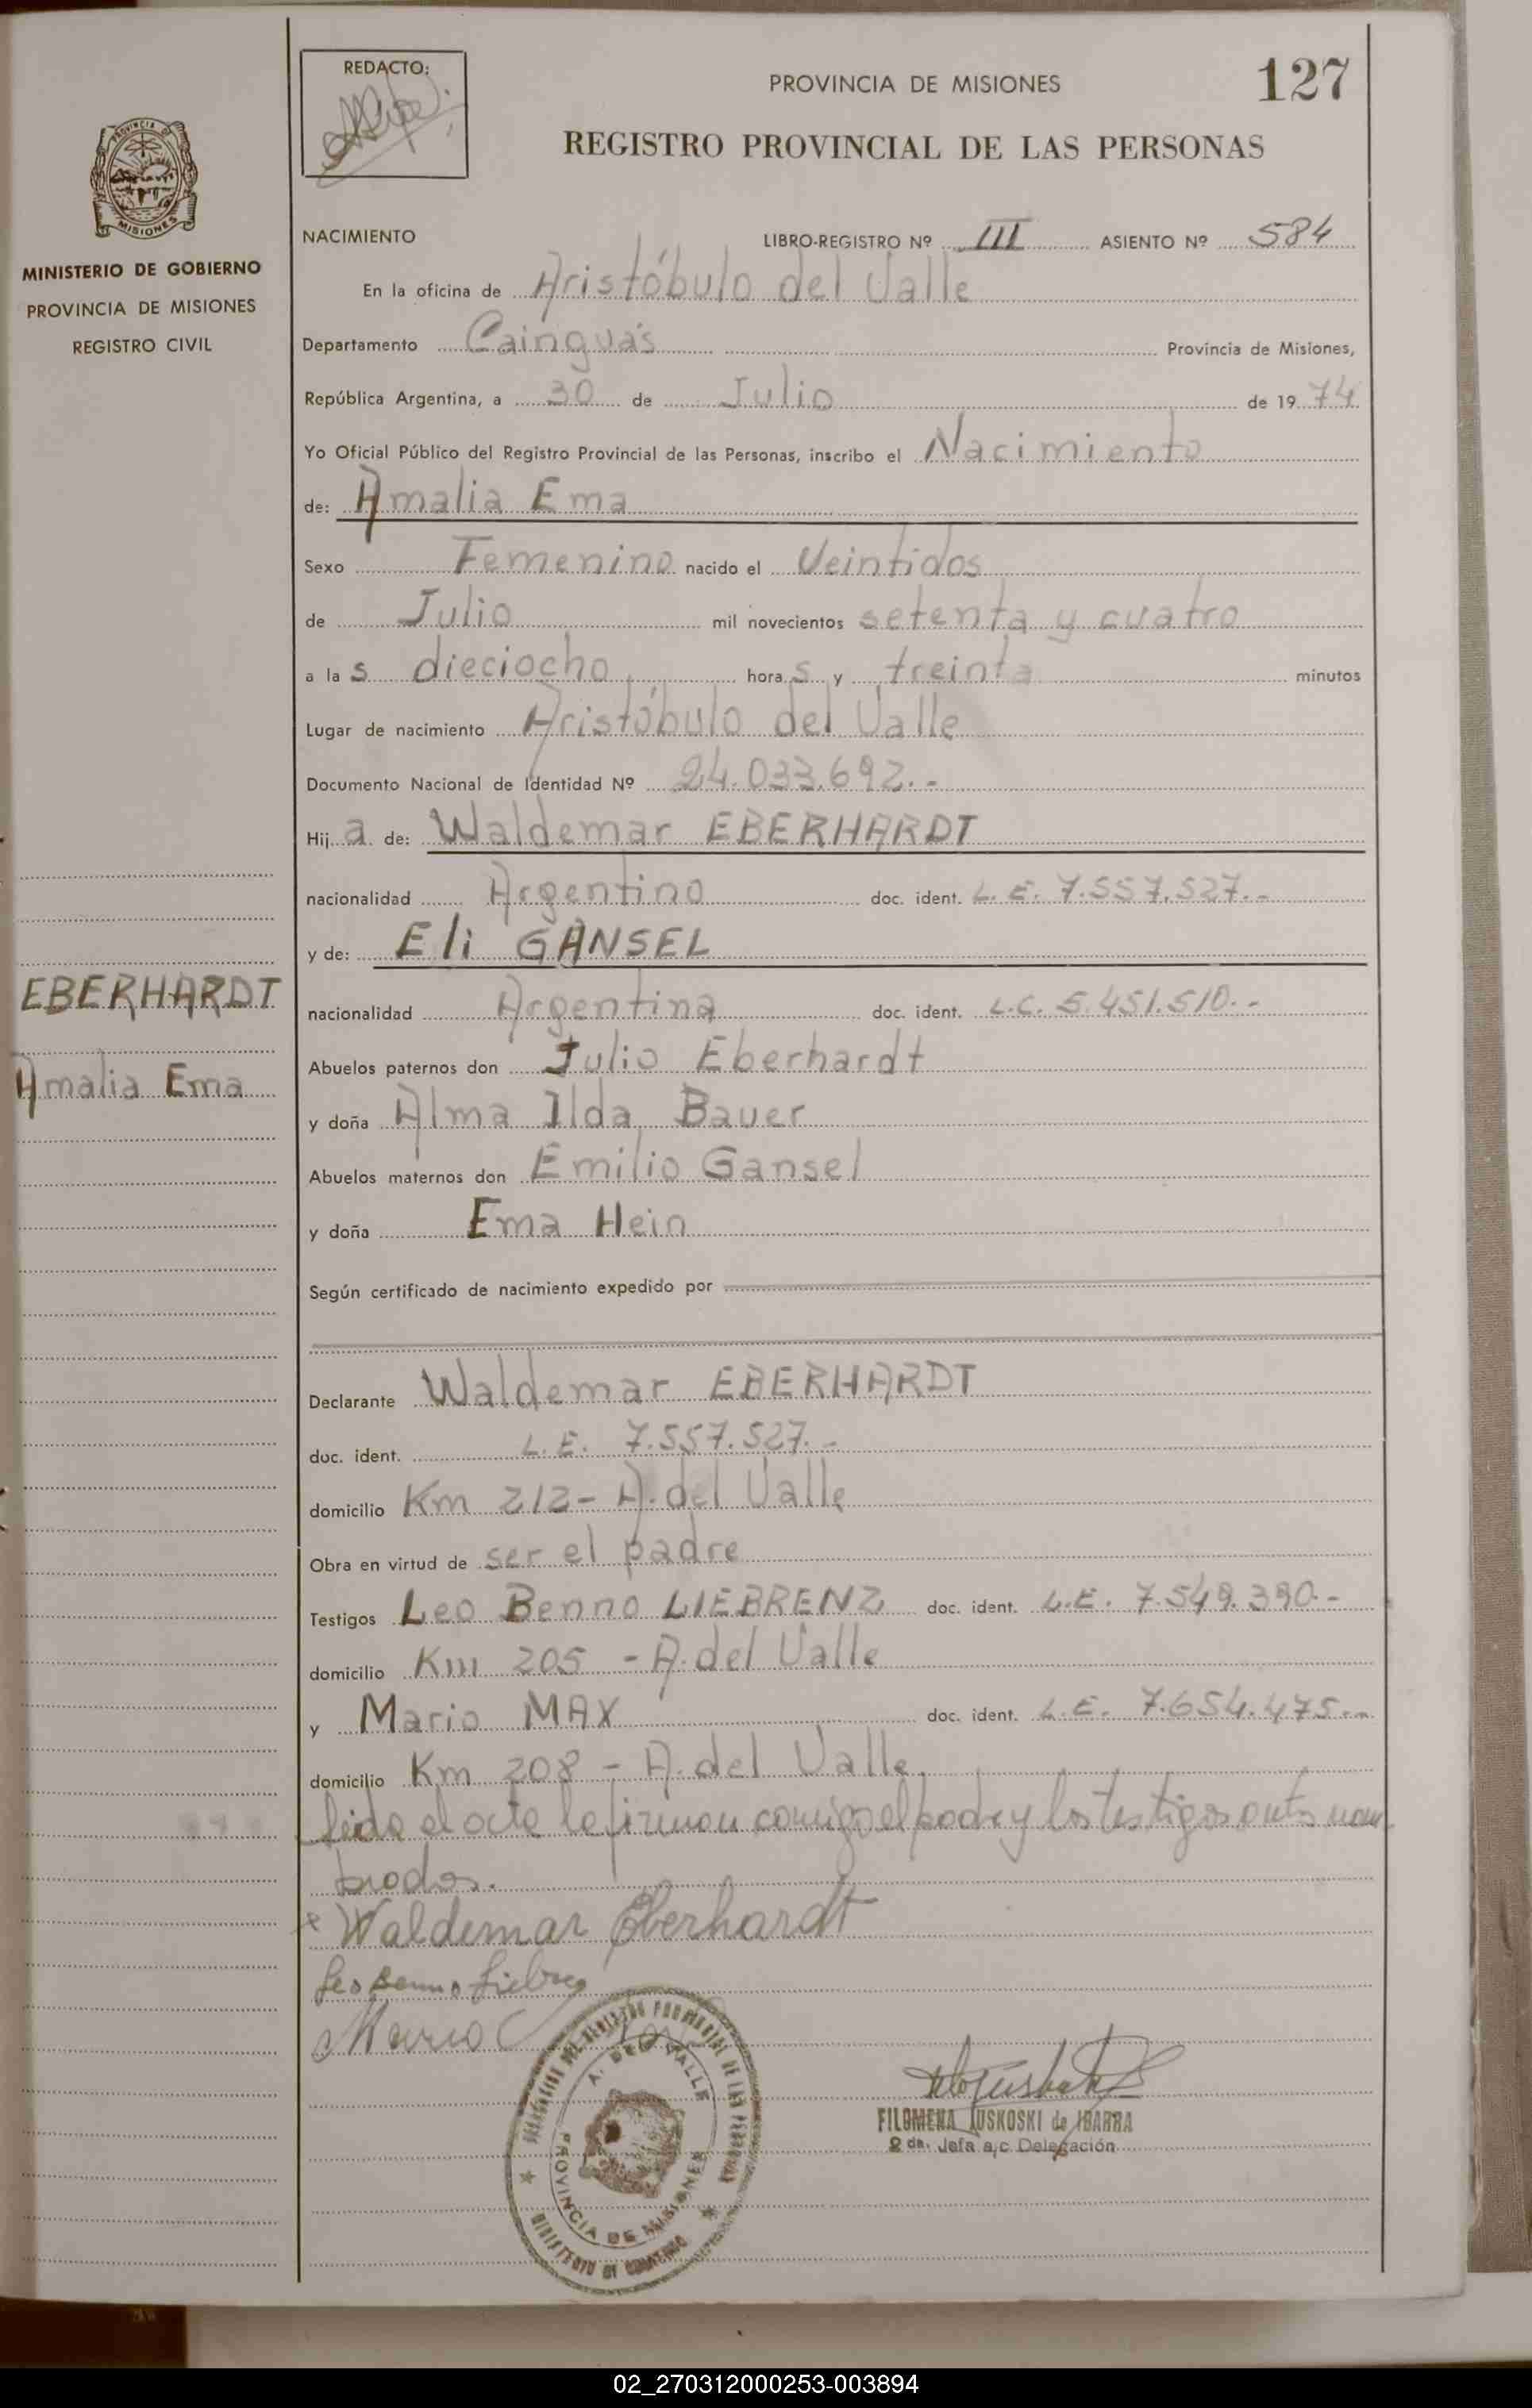 REDACTO:
PROVINCIA DE MISIONES
127
REGISTRO PROVINCIAL DE LAS PERSONAS
MISIONES
MINISTERIO DE GOBIERNO
PROVINCIA DE MISIONES
REGISTRO CIVIL
NACIMIENTO LIBRO-REGISTRO Nº III ASIENTO Nº 584
En la oficina de Aristóbulo del Valle
Departamento Cainguás Provincia de Misiones,
República Argentina, a 30 de Julio de 19 74
Yo Oficial Público del Registro Provincial de las Personas, inscribo el Nacimiento
de: Amalia Ema
Sexo Femenino nacido el Veintidos
de Julio mil novecientos setenta y cuatro
a la s dieciocho hora s y treinta minutos
Lugar de nacimiento Aristóbulo del Valle
Documento Nacional de Identidad Nº 24.033.692.-
Hij a de: Waldemar EBERHARDT
nacionalidad Argentino doc. ident. L.E. 7.557.527.-
y de: Eli GANSEL
EBERHARDT
Amalia Ema
nacionalidad Argentina doc. ident. L.C. 5.451.510.-
Abuelos paternos don Julio Eberhardt
y doña Alma Ilda Bauer
Abuelos maternos don Emilio Gansel
y doña Ema Hein
Según certificado de nacimiento expedido por
Declarante Waldemar EBERHARDT
doc. ident. L.E. 7.557.527.-
domicilio Km 212- A. del Valle
Obra en virtud de ser el padre
Testigos Leo Benno LIEBRENZ doc. ident. L.E. 7.549.390.-
domicilio Km 205 - A. del Valle
y Mario MAX doc. ident. L.E. 7.654.475.-
domicilio Km 208 - A. del Valle.
leida el acta la firman conmigo el padre y los testigos antes nom
brados.
x Waldemar Eberhardt
Leo Benno Liebrenz
Mario Max
DELEGACION DEL REGISTRO PROVINCIAL DE LAS PERSONAS
A. DEL VALLE
PROVINCIA DE MISIONES
MINISTERIO DE GOBIERNO
FILOMENA LUSKOSKI de IBARRA
2 da. Jefa a/c Delegación
02_270312000253-003894